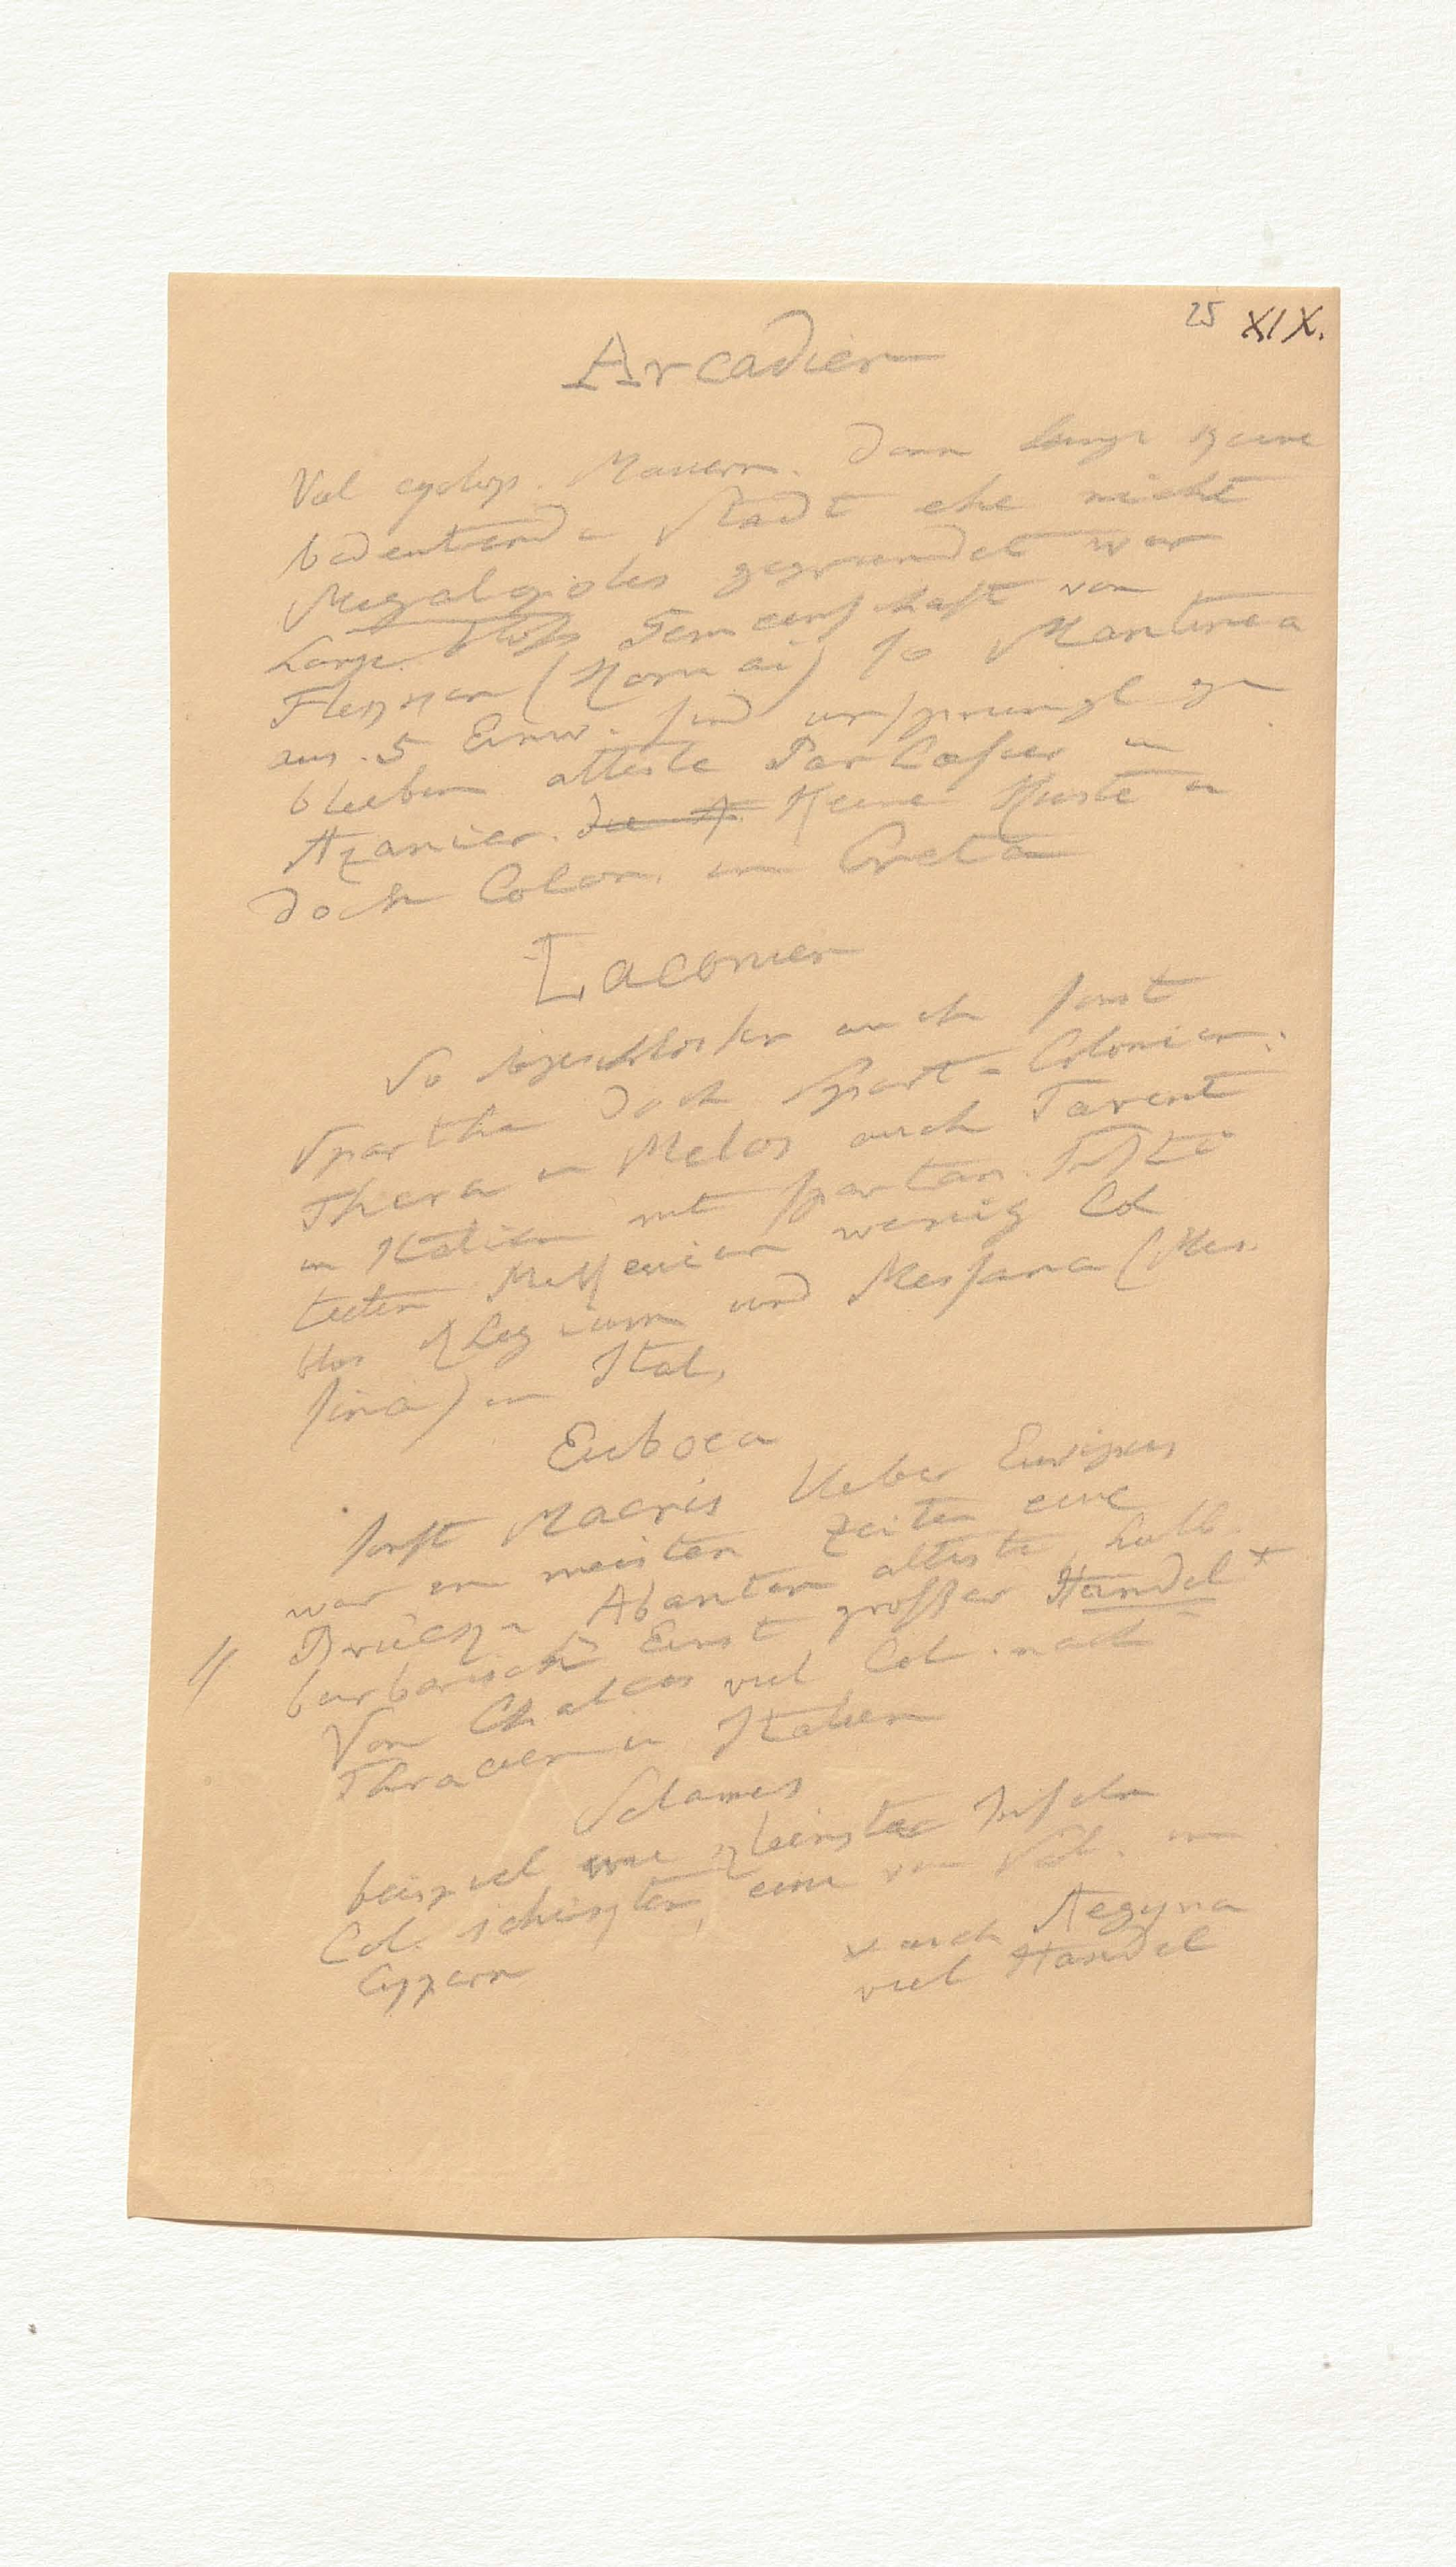 25 XIX.
Arcadien
Viel cyclop. Mauern. Dann lange keine
bedeutende Stadt ehe nicht
Megalopolis gegruendet war
Lange bloss Gemeinschaft von
Flecken (Komai) so Mantinea
aus 5 Einw. sind urspruengl ge
blieben alteste Parhasier u
Azanier. die A. Keine Kuste u
doch Colon. in Creta
Laconien
So abgeschlossen auch sonst
Spartha doch Spart. Colonien:
Thera u Melos auch Tarent
in Italien mit spartan.
Messenien wenig Col
blos Rhegium und Messana (Mes
sina) in Ital.
Euboea
sonst Macris Ueber Euripus
war en meisten Zeiten eine
Brücke Abanten alteste halb
barbarisch Einst grosser Handel +
Von Chalcis viel Col. nach
Thracien u Italien
Salamis
beispiel wie kleinste Inseln
Col. schickten, eine von Sal. in
Cypern
auch Aegyna
viel Handel